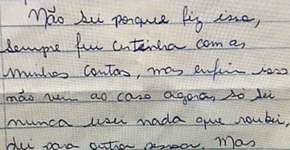 Não sei porque fiz isso,
sempre fui certinha com as
minhas contas, mas enfim isso
não vem ao caso agora, só sei
nunca usei nada que roubei,
dei para outra pessoa. Mas